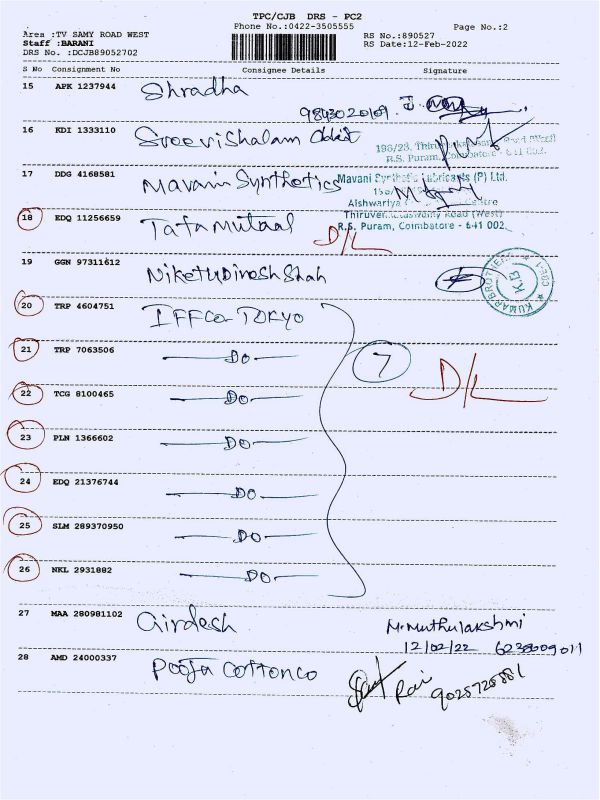 TPC/CJB DRS - PC2
Phone No.:0422-3505555
Page No.:2
Area :TV SAMY ROAD WEST
Staff :BARANI
DRS No. :DCJB89052702
RS No.:890527
RS Date:12-Feb-2022
S No Consignment No Consignee Details Signature
15 APK 1237944 Shradha
9843020109
16 KDI 1333110 Sreevishalam
R.S. Puram, Coimbatore - 641 002.
17 DDG 4168581 Mavani Synthetics
Mavani Synthetic Lubricants (P) Ltd.
Aishwarya Centre
Road (West)
R.S. Puram, Coimbatore - 641 002.
18 EDQ 11256659 Tata Mutaal D/L
19 GGN 97311612 Niketu Dinesh Shah
KUMAR BROTHERS
K.B
CBE-1
20 TRP 4604751 IFFCO TOKYO
21 TRP 7063506 DO 7 D/L
22 TCG 8100465 DO
23 PLN 1366602 DO
24 EDQ 21376744 DO
25 SLM 289370950 DO
26 NKL 2931882 DO
27 MAA 280981102 Girdesh M. Muthulakshmi
12/02/22
28 AMD 24000337 Pooja Cottonco
Rai